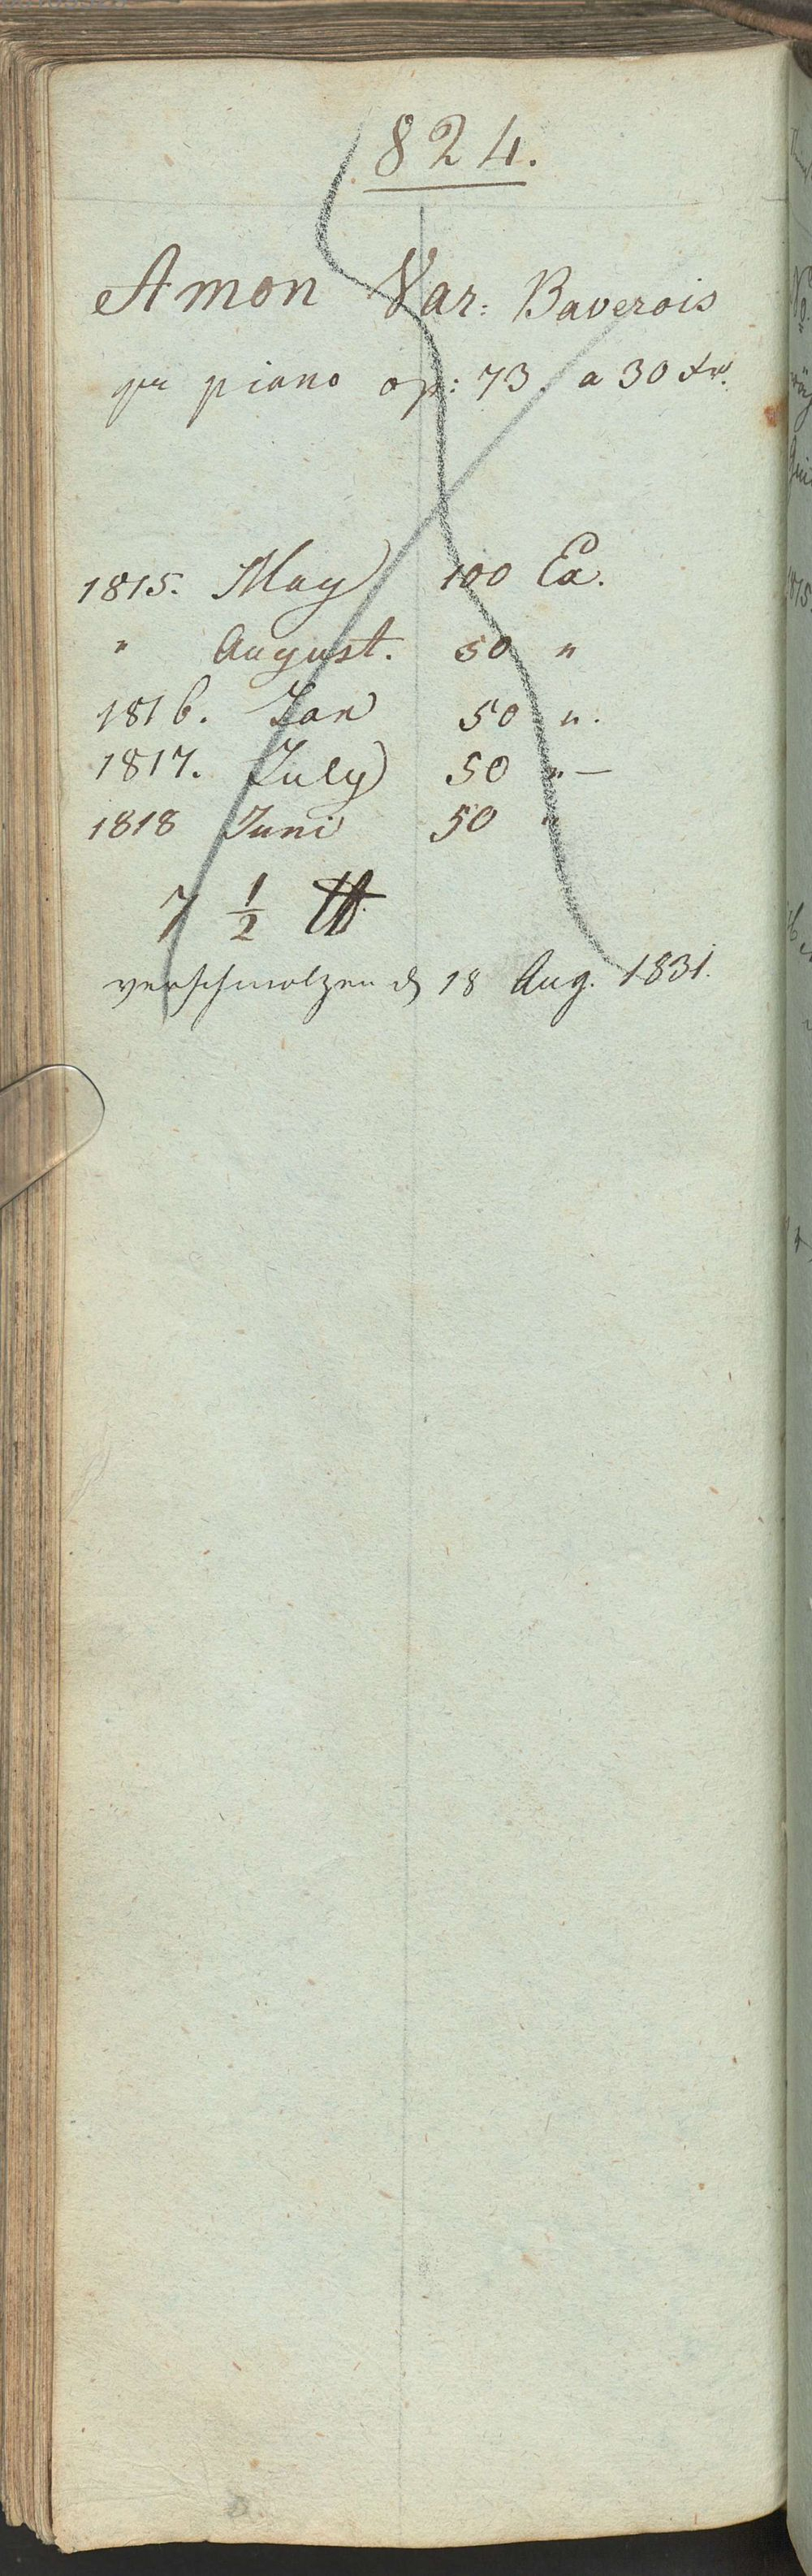 824.
Amon Var: Baverois
pr piano op: 73. a 30 xr.
1815. May 100 Ex.
" August. 50 "
1816. Jan 50 ".
1817. July 50 " —
1818 Juni 50 "
7 1/2 ℔.
verschmolzen d 18 Aug. 1831.